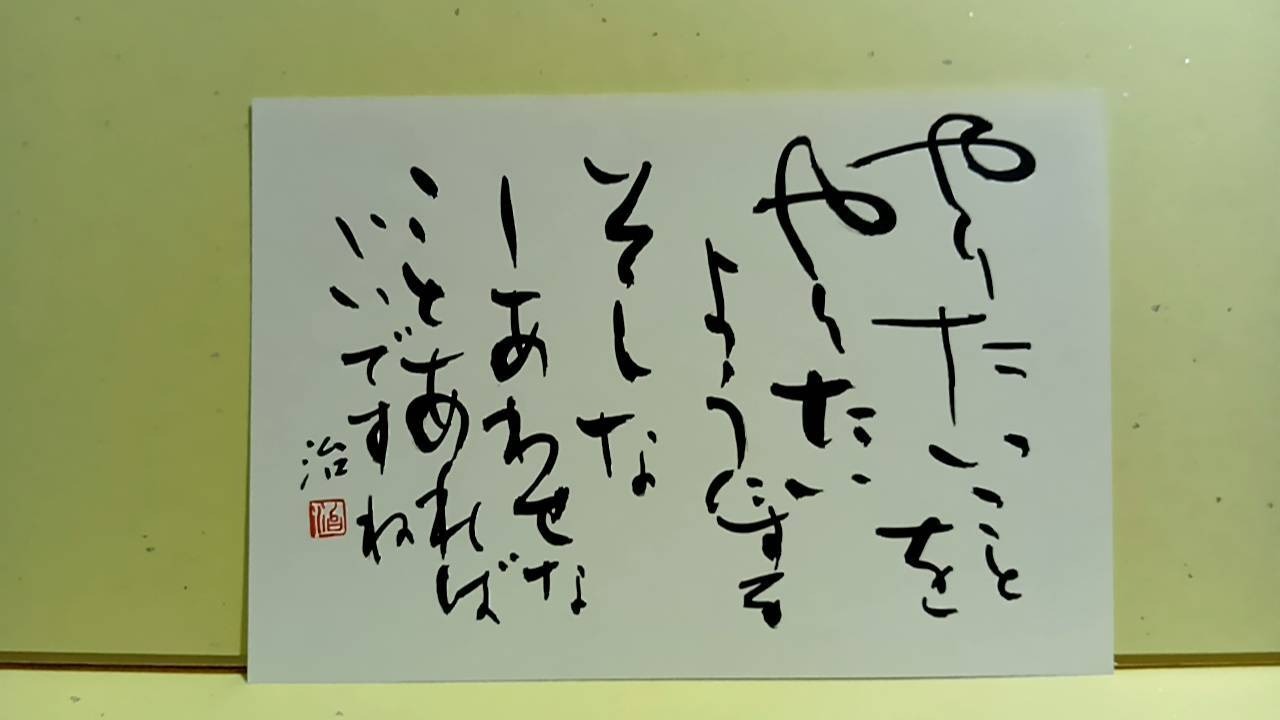 やりたいことを
やりたい
ようにする
そんな
しあわせな
ことあれば
いいですね
治
治